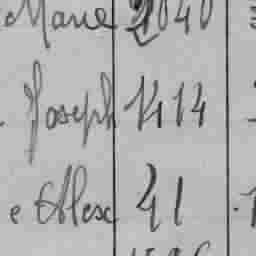 Marie 2040
Joseph 1414
e Alex 41